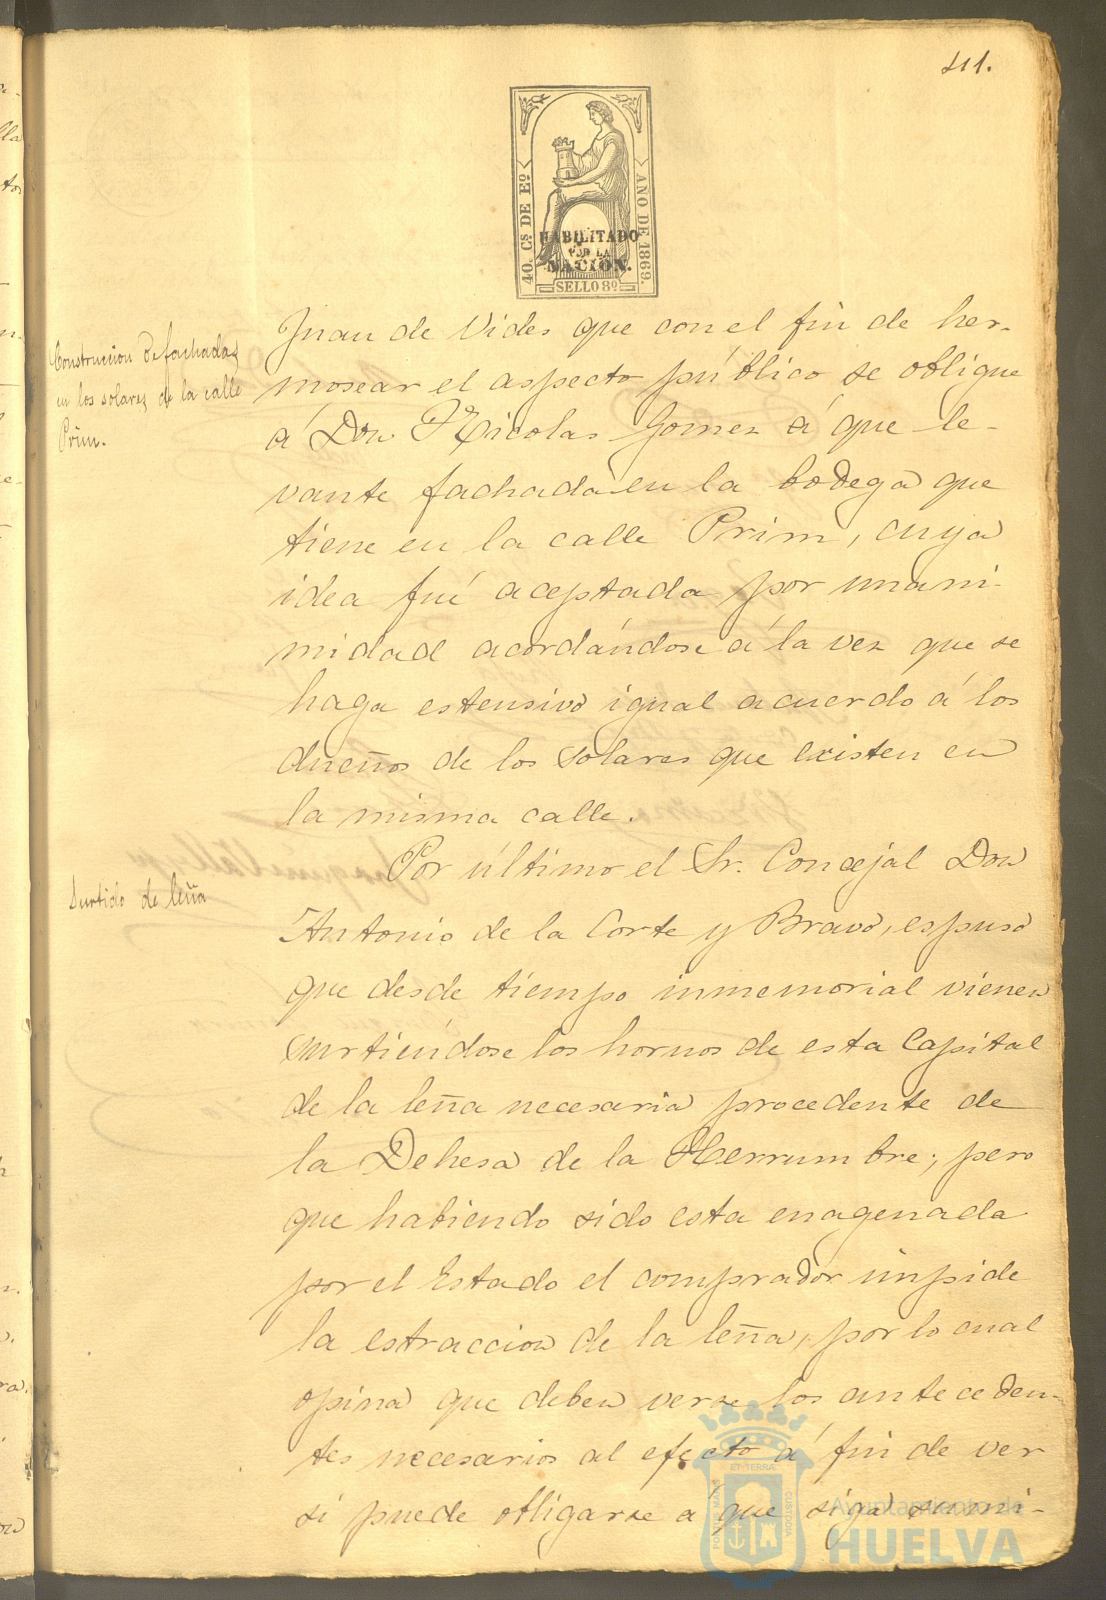 411.
40. Cs DE Eo
AÑO DE 1869.
HABILITADO
POR LA
NACION.
SELLO 8º
Construccion de fachadas
en los solares de la calle
Prim.
Juan de Vides que con el fin de her-
mosear el aspecto público se obligue
á Don Nicolas Gomez á que le-
vante fachada en la bodega que
tiene en la calle Prim, cuya
idea fué aceptada por unani-
midad acordándose á la vez que se
haga estensivo igual acuerdo á los
dueños de los solares que existen en
la misma calle.
Surtido de leña
Por último el Sr. Concejal Don
Antonio de la Corte y Bravo, espuso
que desde tiempo inmemorial vienen
surtiéndose los hornos de esta Capital
de la leña necesaria procedente de
la Dehesa de la Herrumbre; pero
que habiendo sido esta enagenada
por el Estado el comprador impide
la estraccion de la leña, por lo cual
opina que deben verse los anteceden-
tes necesarios al efecto á fin de ver
si puede obligarse á que siga sumi-
PORTUS MARIS
ET TERRÆ
CUSTODIA
Ayuntamiento de
HUELVA